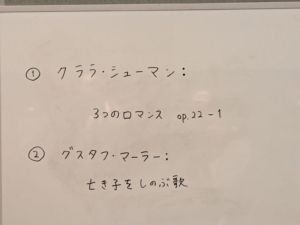 ① クララ・シューマン：
3つのロマンス op.22-1
② グスタフ・マーラー：
亡き子をしのぶ歌